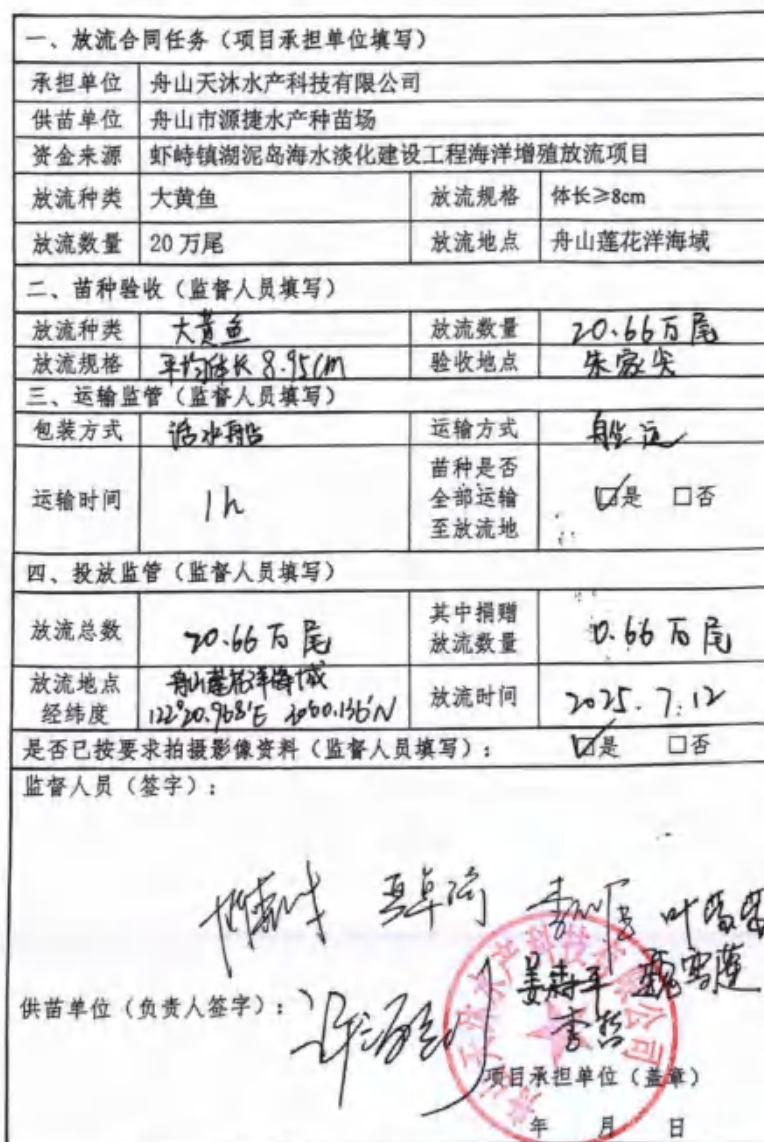 一、放流合同任务（项目承担单位填写）
承担单位 舟山天沐水产科技有限公司
供苗单位 舟山市源捷水产种苗场
资金来源 虾峙镇湖泥岛海水淡化建设工程海洋增殖放流项目
放流种类 大黄鱼 放流规格 体长≥8cm
放流数量 20万尾 放流地点 舟山莲花洋海域
二、苗种验收（监督人员填写）
放流种类 大黄鱼 放流数量 20.66万尾
放流规格 平均体长8.95cm 验收地点 朱家尖
三、运输监管（监督人员填写）
包装方式 活水船 运输方式 船运
运输时间 1h 苗种是否
全部运输
至放流地 ☑是 □否
四、投放监管（监督人员填写）
放流总数 20.66万尾 其中捐赠
放流数量 0.66万尾
放流地点
经纬度 舟山莲花洋海域
122°20.968'E
放流时间 2025.7.12
是否已按要求拍摄影像资料（监督人员填写）： ☑是 □否
监督人员（签字）：
魏雪莲
李哲
供苗单位（负责人签字）：
舟山天沐水产科技有限公司
项目承担单位（盖章）
年 月 日